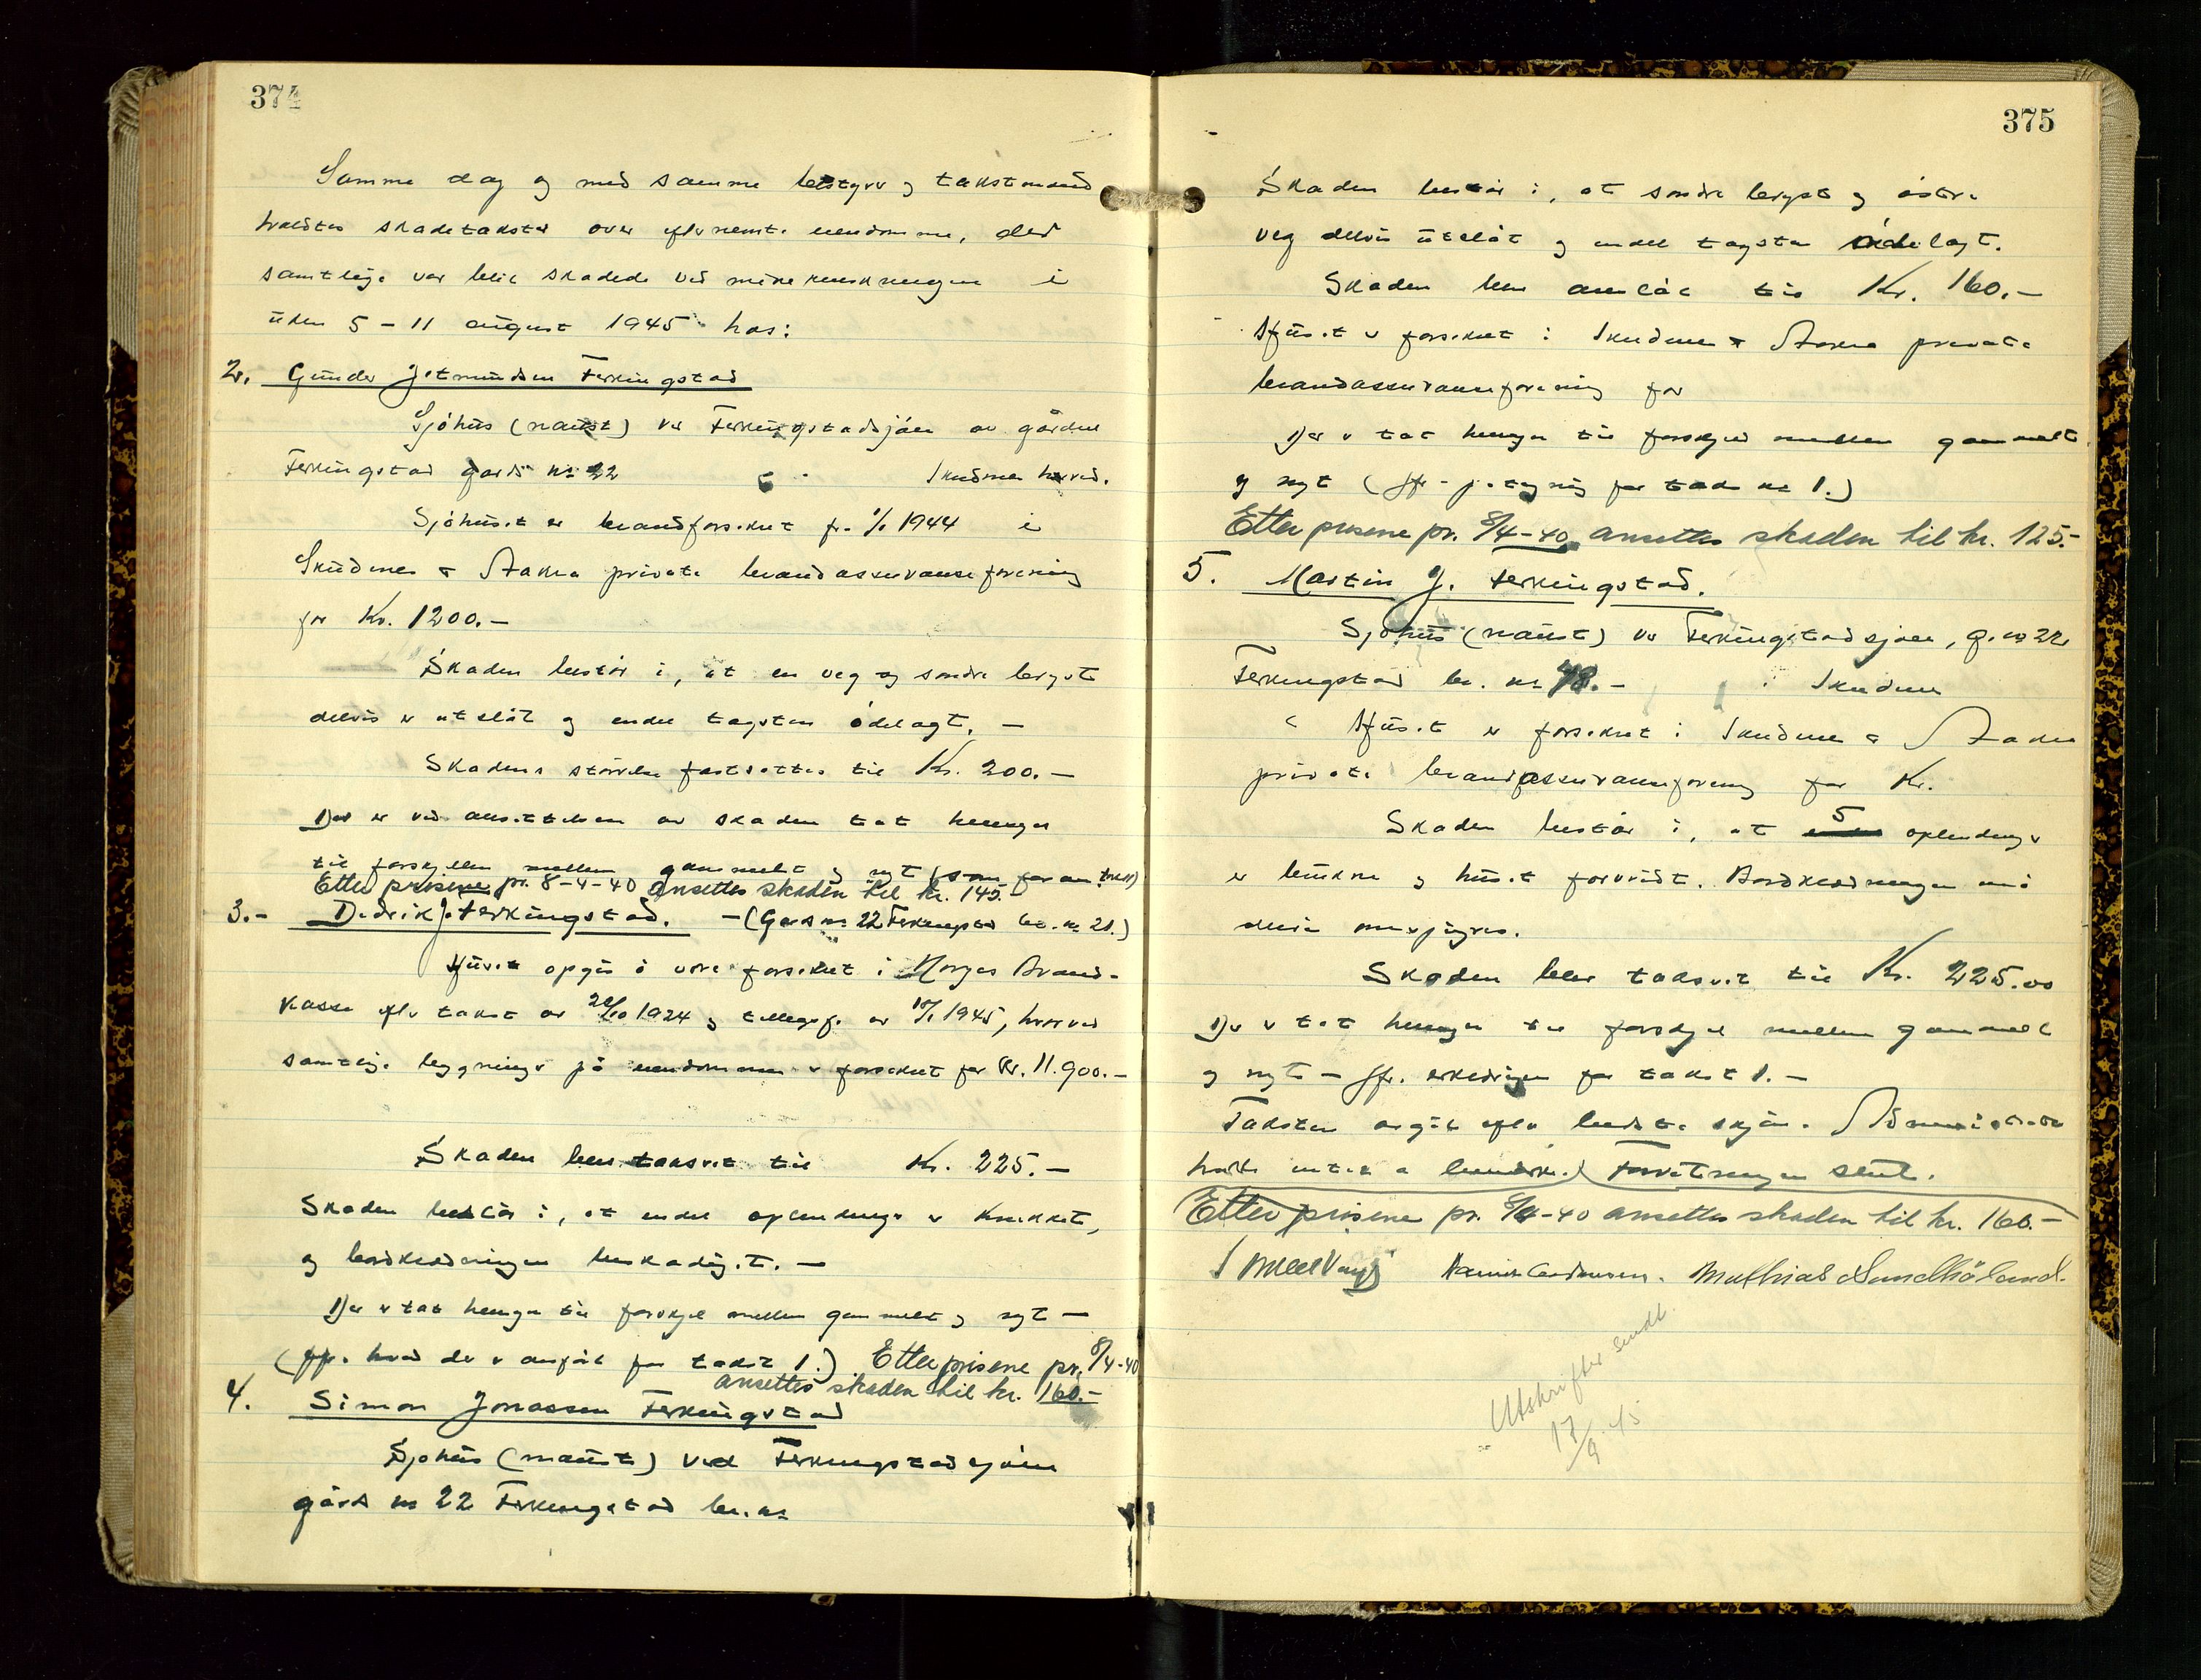 374
Samme dag og med samme bestyrer og takstmænd
holdtes skadetakster over efternevnte eiendomme, der
samtlige var blit skadede ved minesprengningen i
uken 5 - 11 august 1945 hos:
2. Gunder Jetmundsen Ferkingstad
Sjöhus (naust) ved Ferkingstadsjöen av gården
Ferkingstad gards nr 22 Skudenes herred.
Sjöhuset er brandforsikret fr. 1/1 1944 i
Skudenes & Aakra private brandassuranseforening
for Kr. 1200.-
Skaden består i, at en veg og söndre bryst
delvis er utslåt og endel tagsten ödelagt. -
Skadens störrelse fastsettes til Kr. 200.-
Der er ved ansettelsen av skaden tat hensyn
til forskjellen mellem gammelt og nyt (som foran takst)
Etter prisene pr. 8-4-40 ansettes skaden til kr. 145.-
3.- Didrik J. Ferkingstad. - (Gards nr 22 Ferkingstad br. nr 21.)
Huset opgis å være forsikret i Norges Brand-
kasse efter takst av 20/10 1924 og tilleggsf. av 1945, hvorved
samtlige bygninger på eiendommen er forsikret for Kr. 11.900.-
Skaden blev taksert til Kr. 225.-
Skaden består i, at endel oplendinger er knekket,
og bordkledningen beskadiget. -
Der er tat hensyn til forskjel mellem gammelt og nyt -
(jfr. hvad der er anfört for takst 1.) Etter prisene pr. 8/4-40
ansettes skaden til kr. 160.-
4. Simon Jonassen Ferkingstad
Sjöhus (naust) ved Ferkingstadsjöen
gårds nr 22 Ferkingstad br. nr
375
Skaden består i, at söndre bryst og östre
veg delvis utslåt og endel tagsten ödelagt.
Skaden blev anslåt til Kr. 160.-
Huset er forsikret i Skudenes & Aakra private
brandassuranseforening for
Der er tat hensyn til forskjel mellem gammelt
og nyt (jfr. for takst nr 1.)
Etter prisene pr. 8/4-40 ansettes skaden til kr. 125.-
5. Martin J. Ferkingstad.
Sjöhus (naust) ved Ferkingstadsjöen, g. nr 22
Ferkingstad br. nr 48.- Skudenes
Huset er forsikret i Skudenes & Aakra
private brandassuranseforening for Kr.
Skaden består i, at 5 oplendinger
er brukne og huset forvridt. Bordkledningen må
delvis omspikres.
Skaden blev taksert til Kr. 225.00
Der er tat hensyn til forskjel mellem gammelt
og nyt - jfr. erklæringen for takst 1. -
Taksten avgit efter bedste skjön.
hadde intet å bemerke.) Forretningen slut.
Etter prisene pr. 8/4-40 ansettes skaden til kr. 160.-
Mathias Sandhåland.
Utskrifter sendt
17/9 45